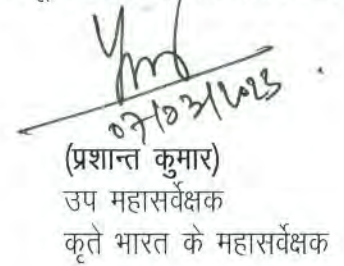 07/03/2023
(प्रशान्त कुमार)
उप महासर्वेक्षक
कृते भारत के महासर्वेक्षक